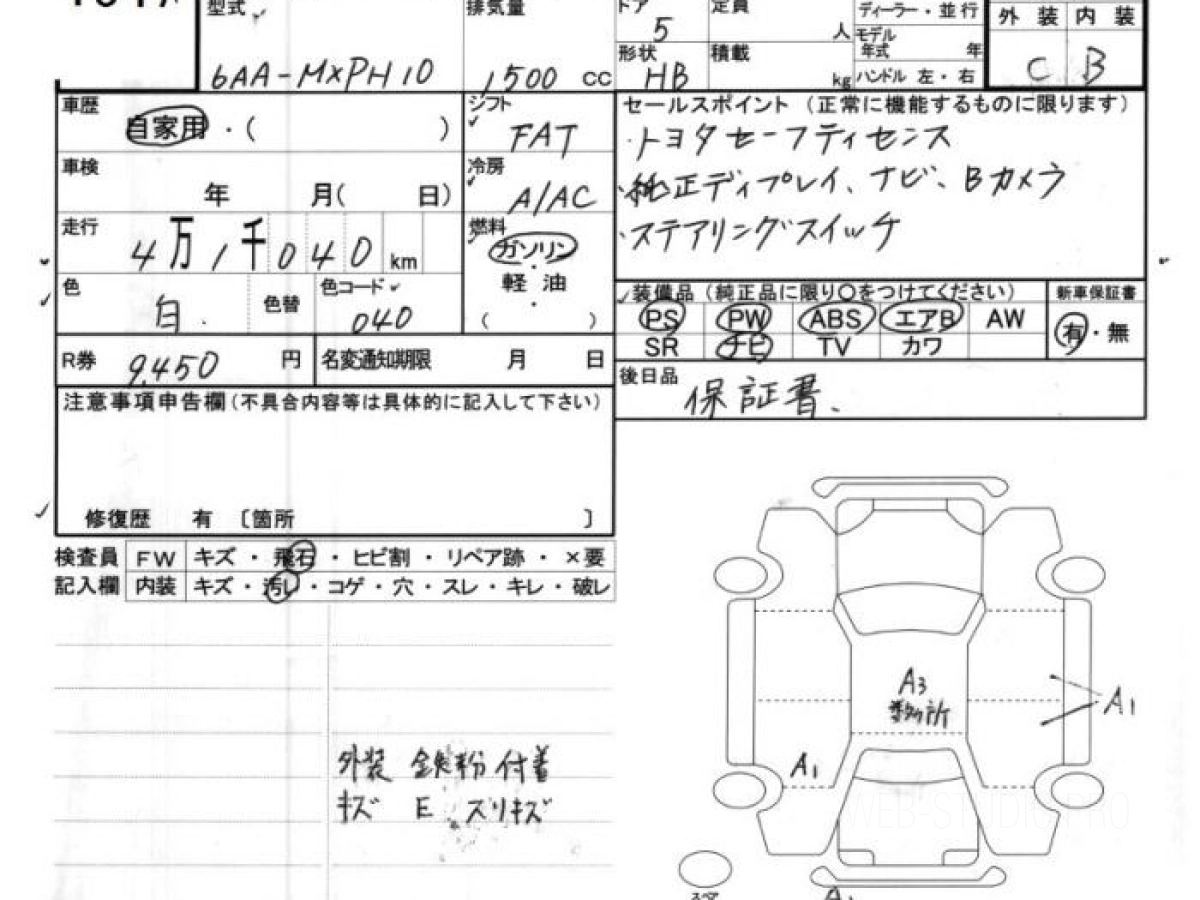 型式 排気量 ドア 定員 ディーラー・並行 外装 内装
6AA-MXPH10 1500 cc 5 人 モデル年式 年 C B
形状 HB 積載 kg ハンドル 左・右
車歴 自家用・( ) シフト FAT
セールスポイント（正常に機能するものに限ります）
・トヨタセーフティセンス
車検 年 月( 日) 冷房 A/AC
・純正ディプレイ、ナビ、Bカメラ
走行 4万1千040km 燃料 ガソリン・軽油・( )
・ステアリングスイッチ
色 白. 色替 色コード 040
装備品（純正品に限り○をつけてください） 新車保証書
PS PW ABS エアB AW 有・無
SR ナビ TV カワ
R券 9,450 円 名変通知期限 月 日
後日品 保証書.
注意事項申告欄（不具合内容等は具体的に記入して下さい）
修復歴 有 〔箇所 〕
検査員 FW キズ・飛石・ヒビ割・リペア跡・×要
記入欄 内装 キズ・汚レ・コゲ・穴・スレ・キレ・破レ
A3
A1
外装 鉄粉付着
A1
キズ E スリキズ
WEB-STUDIO.PRO
スペア